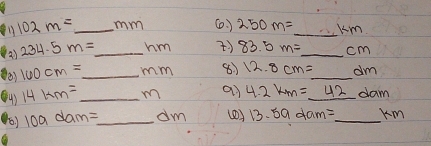 1) 102 m = ____ mm
2) 234.5 m = ____ hm
3) 100 cm = ____ mm
4) 14 km = ____ m
5) 109 dam = ____ dm
6.) 250 m = ____ km
7.) 83.5 m = ____ cm
8.) 12.8 cm = ____ dm
9.) 4.2 km = 42 dam
10.) 13.59 dam = ____ km